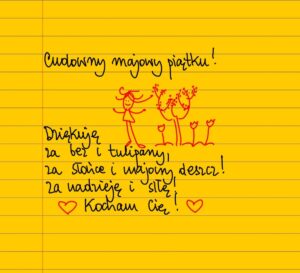 Cudowny majowy piątku!
Dziękuję
za bez i tulipany,
za słońce i majowy deszcz!
Za nadzieję i siłę!
Kocham Cię!